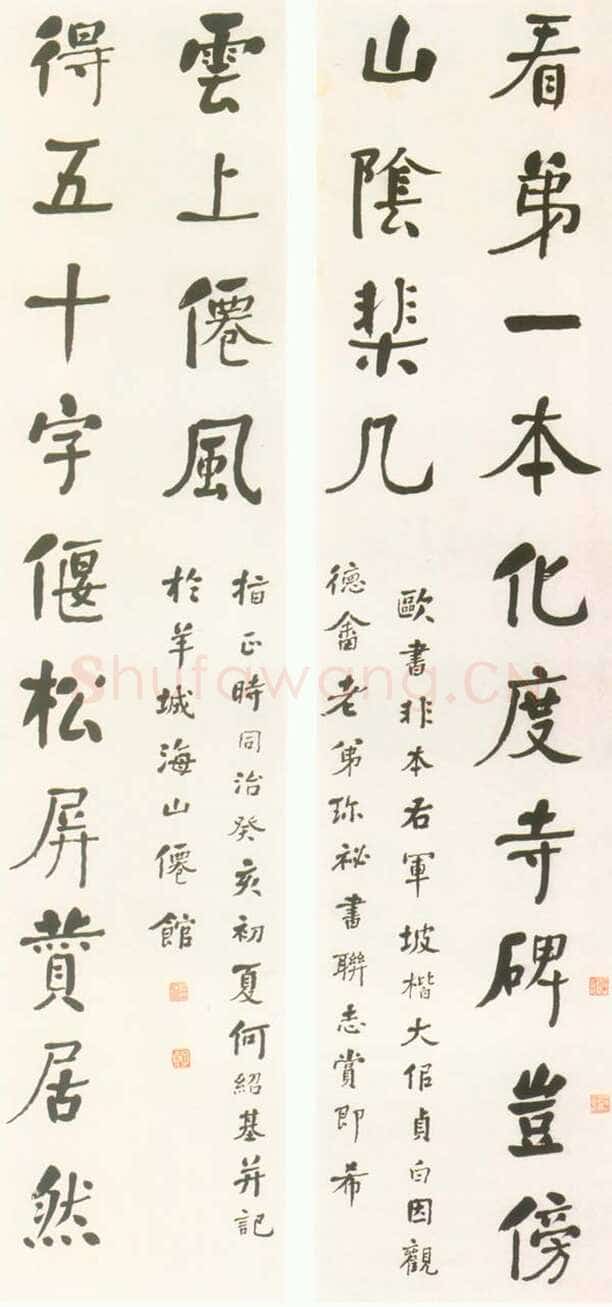 看弟一本化度寺碑豈傍
山陰棐几
歐書非本右軍坡楷大佀貞白因觀
德畬老弟珎祕書聯志賞即希
得五十字偃松屏贊居然
雲上僊風
指正時同治癸亥初夏何紹基并記
於羊城海山僊館
Shufawang.CN